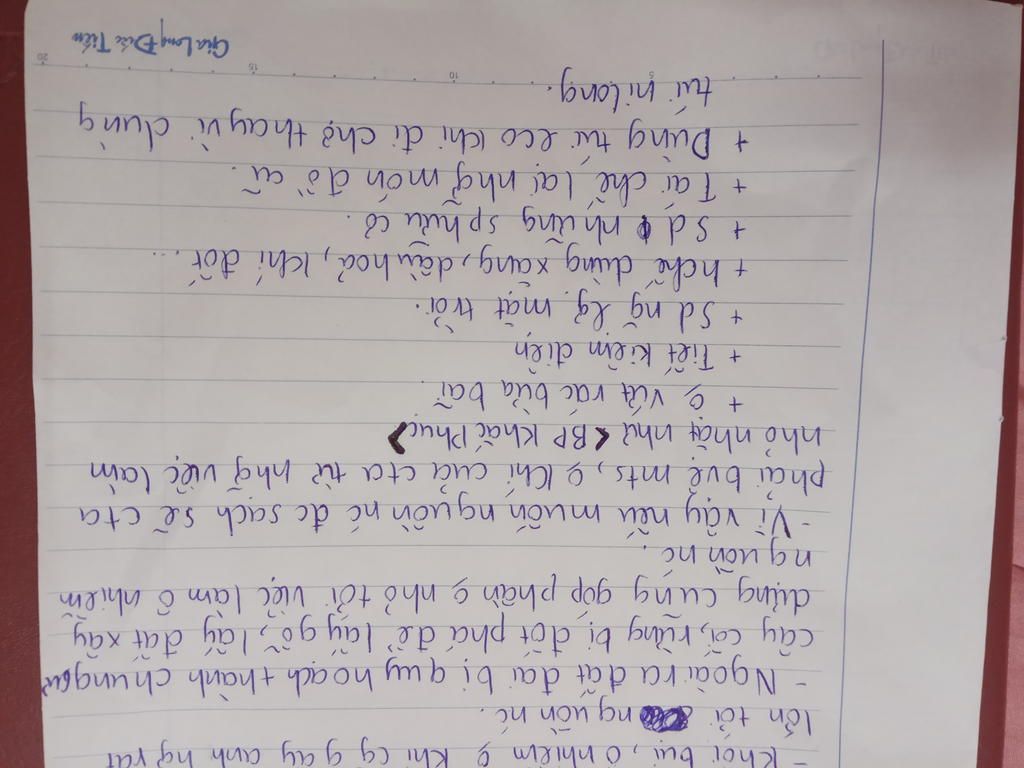 - Khói bụi, ô nhiễm k khí cg gây ảnh hg rất
lớn tới nguồn nc.
- Ngoài ra đất đai bị quy hoạch thành chung cư
cây cối, rừng bị đốt phá để lấy gỗ, lấy đất xây
dựng cũng góp phần k nhỏ tới việc làm ô nhiễm
nguồn nc.
- Vì vậy nếu muốn nguồn nc đc sạch sẽ cta
phải bvệ mts, k khí của cta từ nhg việc làm
nhỏ nhặt như <BP Khắc Phục>
+ k vứt rác bừa bãi.
+ Tiết kiệm điện
+ Sd ng lg mặt trời.
+ hchế dùng xăng, dầu hoả, khí đốt...
+ Sd những sp hữu cơ.
+ Tái chế lại nhg món đồ cũ.
+ Dùng túi eco khi đi chợ thay vì dùng
túi nilong.
5 10 15 20
Gia Long Đức Tiến